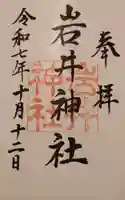 奉拝
岩井神社
令和七年十月十二日
岩井神社